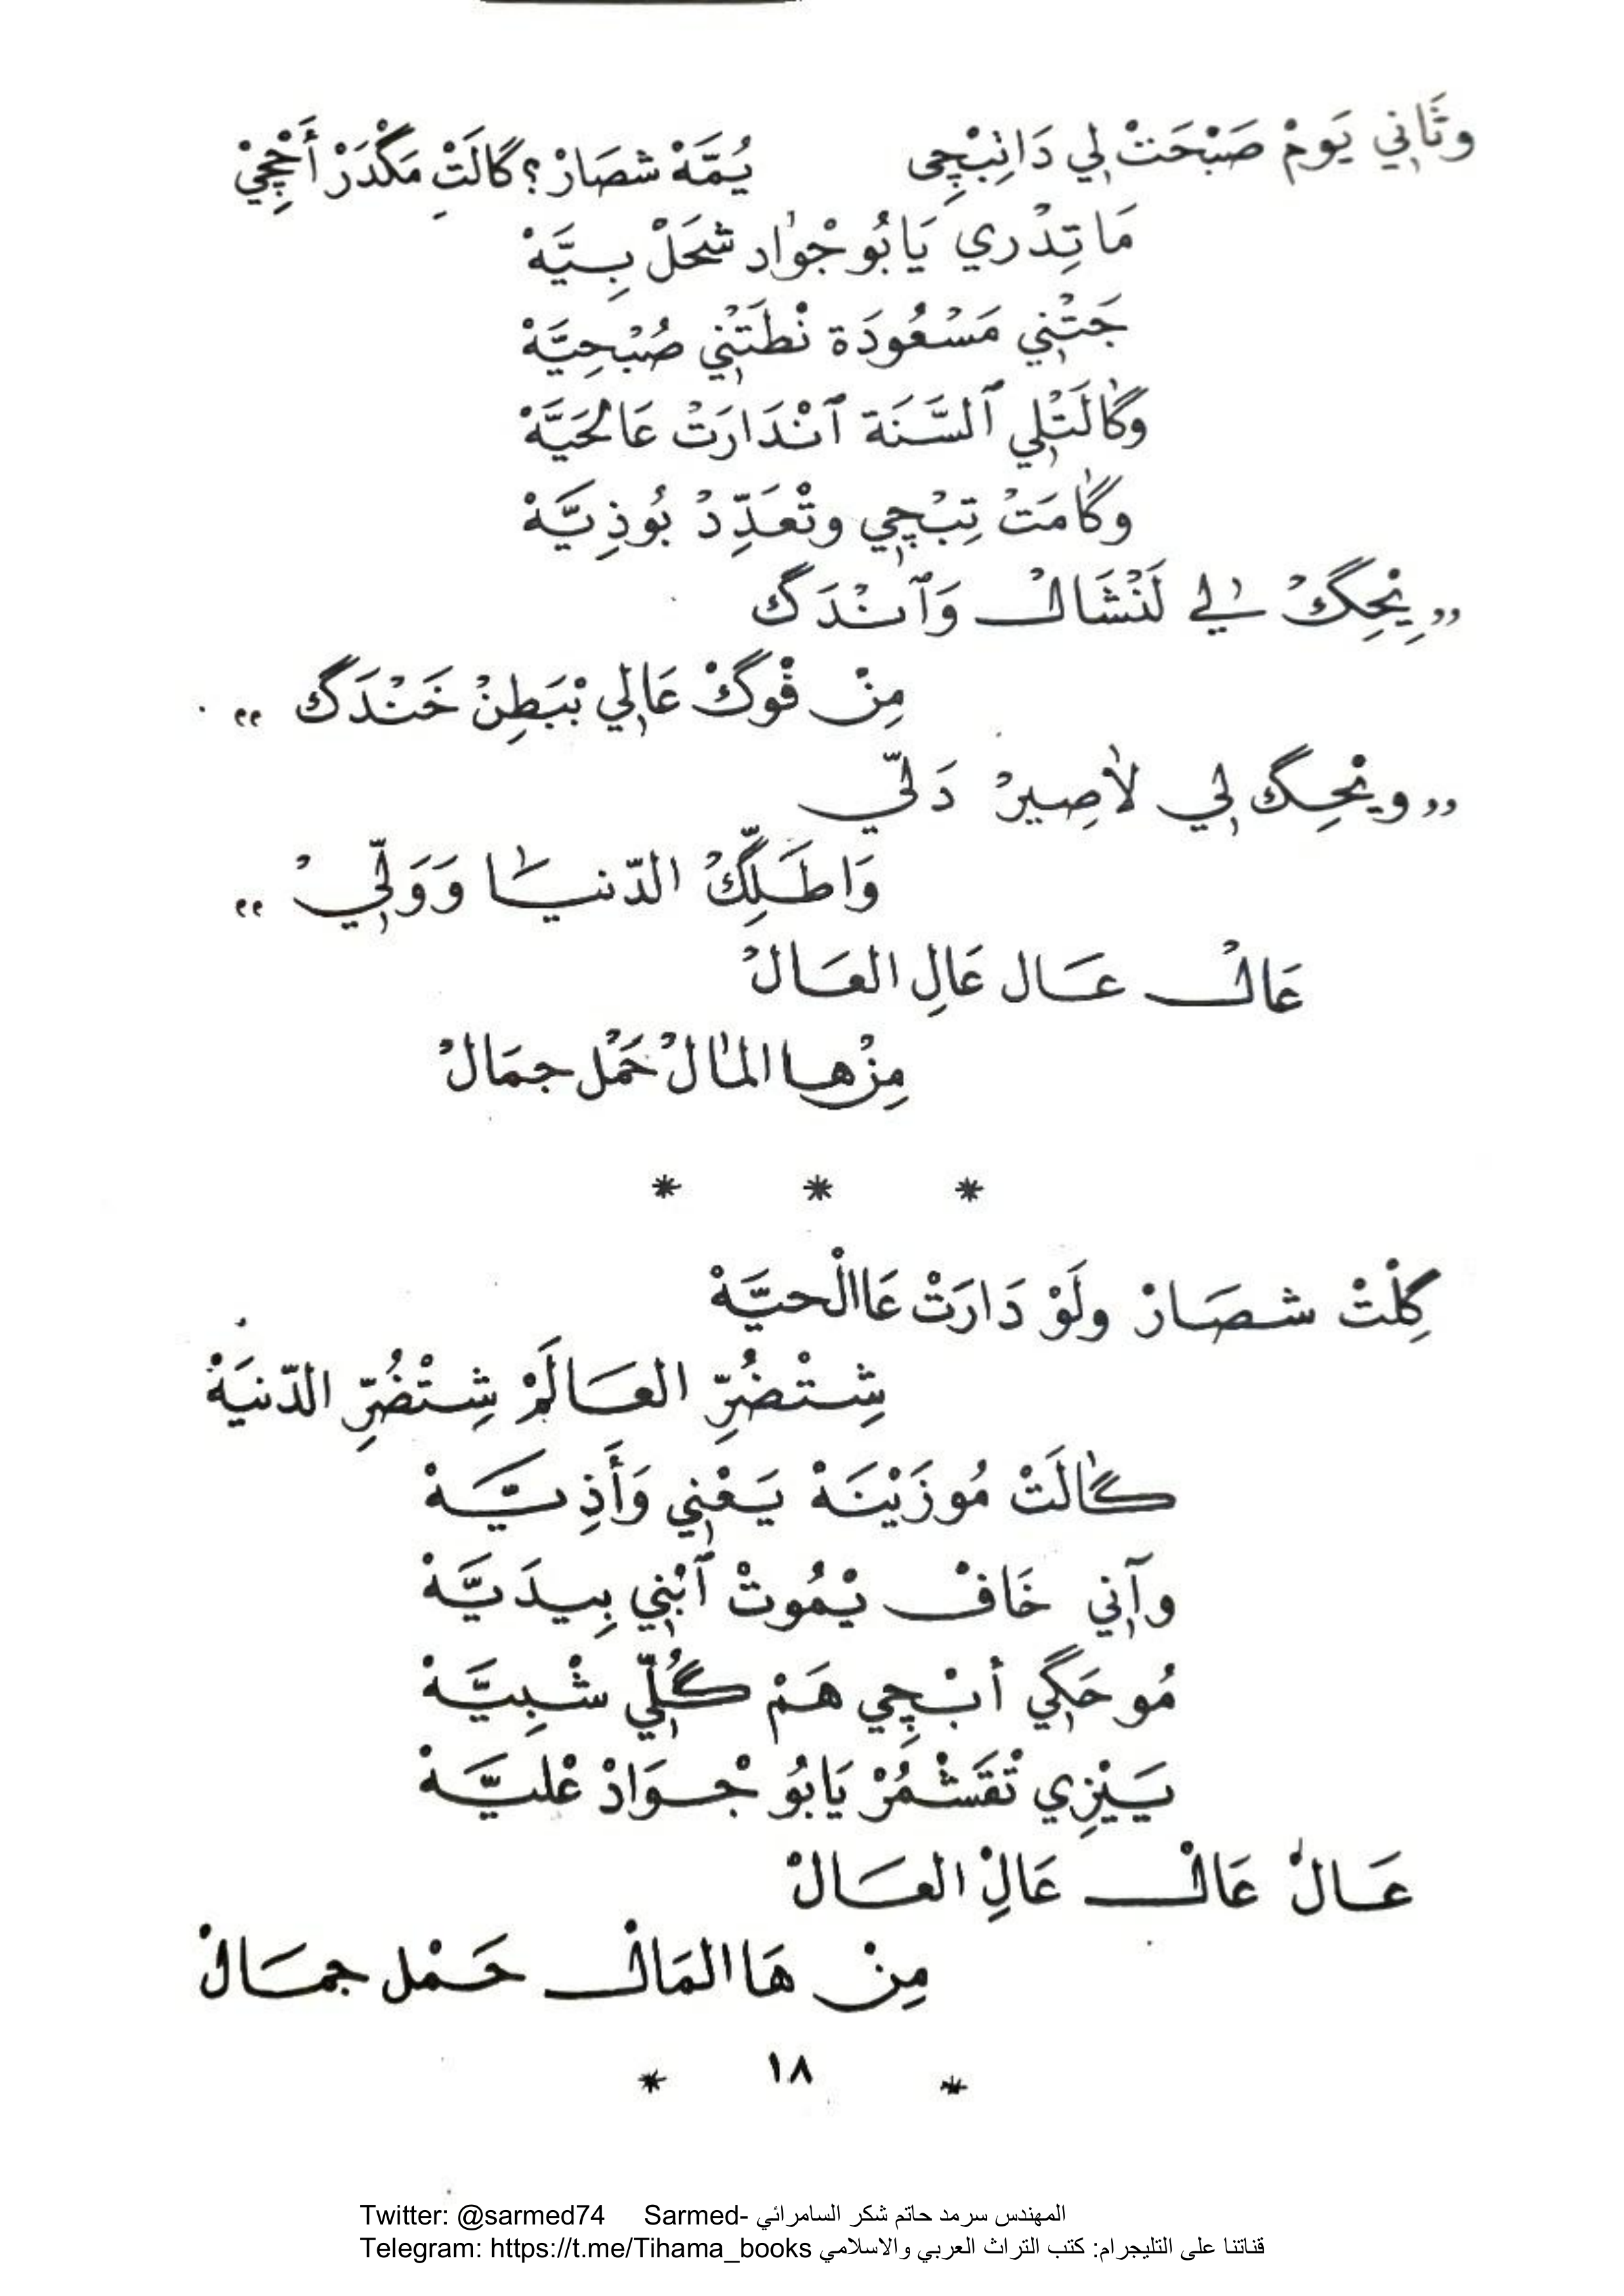 وثَاني يَومْ صَبْحَتْ لي دَانِبْچِي يُمَّهْ شصَارْ؟ گالَتِ مَگْدَرْ أَحْچِيْ
مَاتِدْري يَابُو جْوَاد شحَلْ بِيَّهْ
جَتْني مَسْعُودَة نْطَتْني صُبْحِيَّهْ
وگالَتْلي ٱلسَّنَة ٱنْدَارَتْ عَالحَيَّهْ
وگامَتْ تِبْچِي وتْعَدِّدْ بُوذِيَّهْ
„يْحِگْ لي لَنْشَالْ وَٱنْدَگ
مِنْ فْوگْ عَالي بْبَطِنْ خَنْدَگ „
„ويْحِگ لي لاصِيرْ دَلّي
وَاطَلِّگْ الدّنيَا وَوَلّيْ „
عَالْ عَال عَالِ العَالْ
مِنْها المالْ حَمْل جمَالْ
* * *
گِلْتْ شصَارْ ولَوْ دَارَتْ عَاالْحيَّهْ
شِتْضُرِّ العَالَمْ شِتْضُرِّ الدّنيَةْ
گالَتْ مُوزَيْنَهْ يَعْني وَأَذِيَّهْ
وآني خَافْ يْمُوتْ ٱبْني بِيدَيَّهْ
مُو حَگي أبْچِي هَمْ گُلّي شْبِيَّهْ
يَيْزِي تْقَشْمُرْ يَابُو جْوَادْ عْليَّهْ
عَالْ عَالْ عَالِ العَالْ
مِنْ هَاالمَالْ حَمْل جمَالْ
* ١٨ *
Twitter: @sarmed74 Sarmed- المهندس سرمد حاتم شكر السامرائي
Telegram: https://t.me/Tihama_books قناتنا على التليجرام: كتب التراث العربي والاسلامي